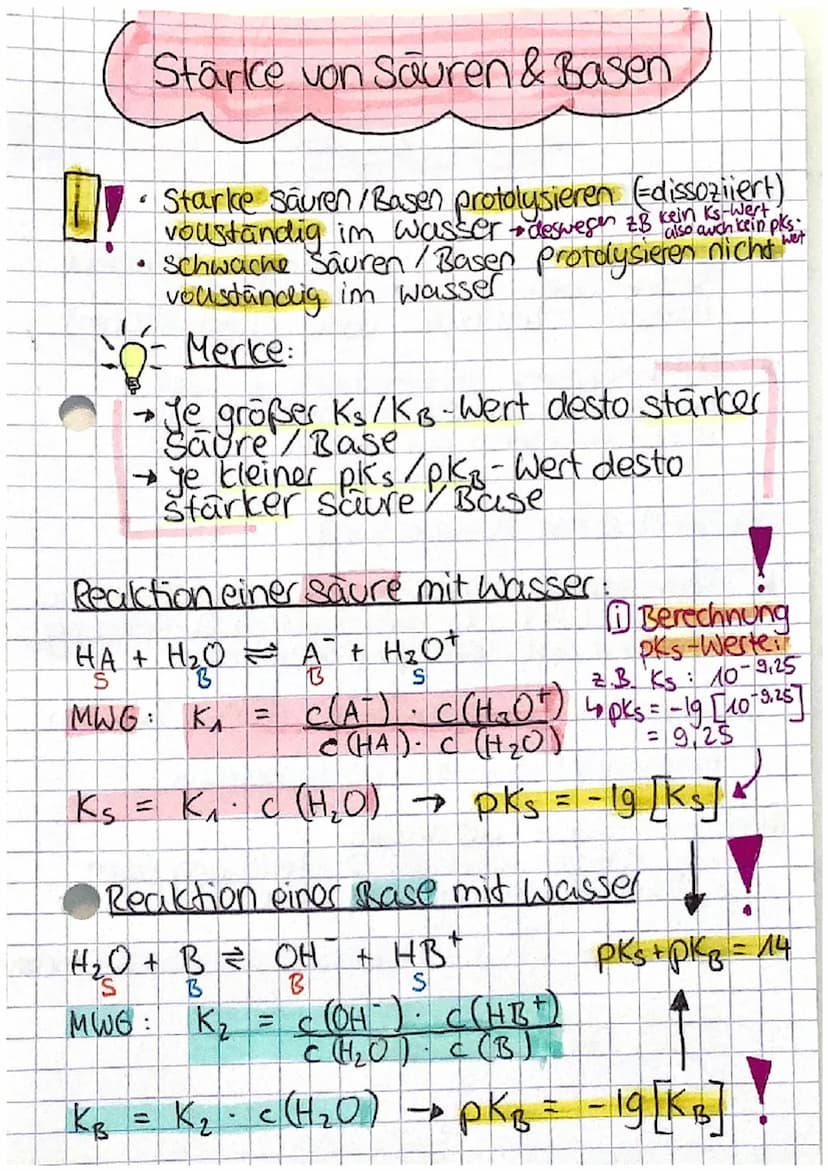 Stärke von Säuren & Basen
! • Starke Säuren/Basen protolysieren (=dissoziiert)
vollständig im Wasser → deswegen zB kein Ks-Wert
also auch kein pKs-wert
• schwache Säuren/Basen protolysieren nicht
vollständig im Wasser
Merke:
→ Je größer Ks/KB-Wert desto stärker
Säure/Base
→ je kleiner pKs/pKB-Wert desto
stärker Säure/Base
Reaktion einer Säure mit Wasser:
HA + H₂O ⇌ A⁻ + H₃O⁺
S B B S
MWG: K₁ = c(A⁻) · c(H₃O⁺)
c(HA) · c(H₂O)
i Berechnung
pKs-Werte:
z.B. Ks: 10^-9,25
↳ pKs = -lg [10^-9,25]
= 9,25
Ks = K₁ · c(H₂O) → pKs = -lg [Ks]
Reaktion einer Base mit Wasser
H₂O + B ⇌ OH⁻ + HB⁺
S B B S
pKs + pKB = 14
MWG: K₂ = c(OH⁻) · c(HB⁺)
c(H₂O) · c(B)
KB = K₂ · c(H₂O) → pKB = -lg [KB] !